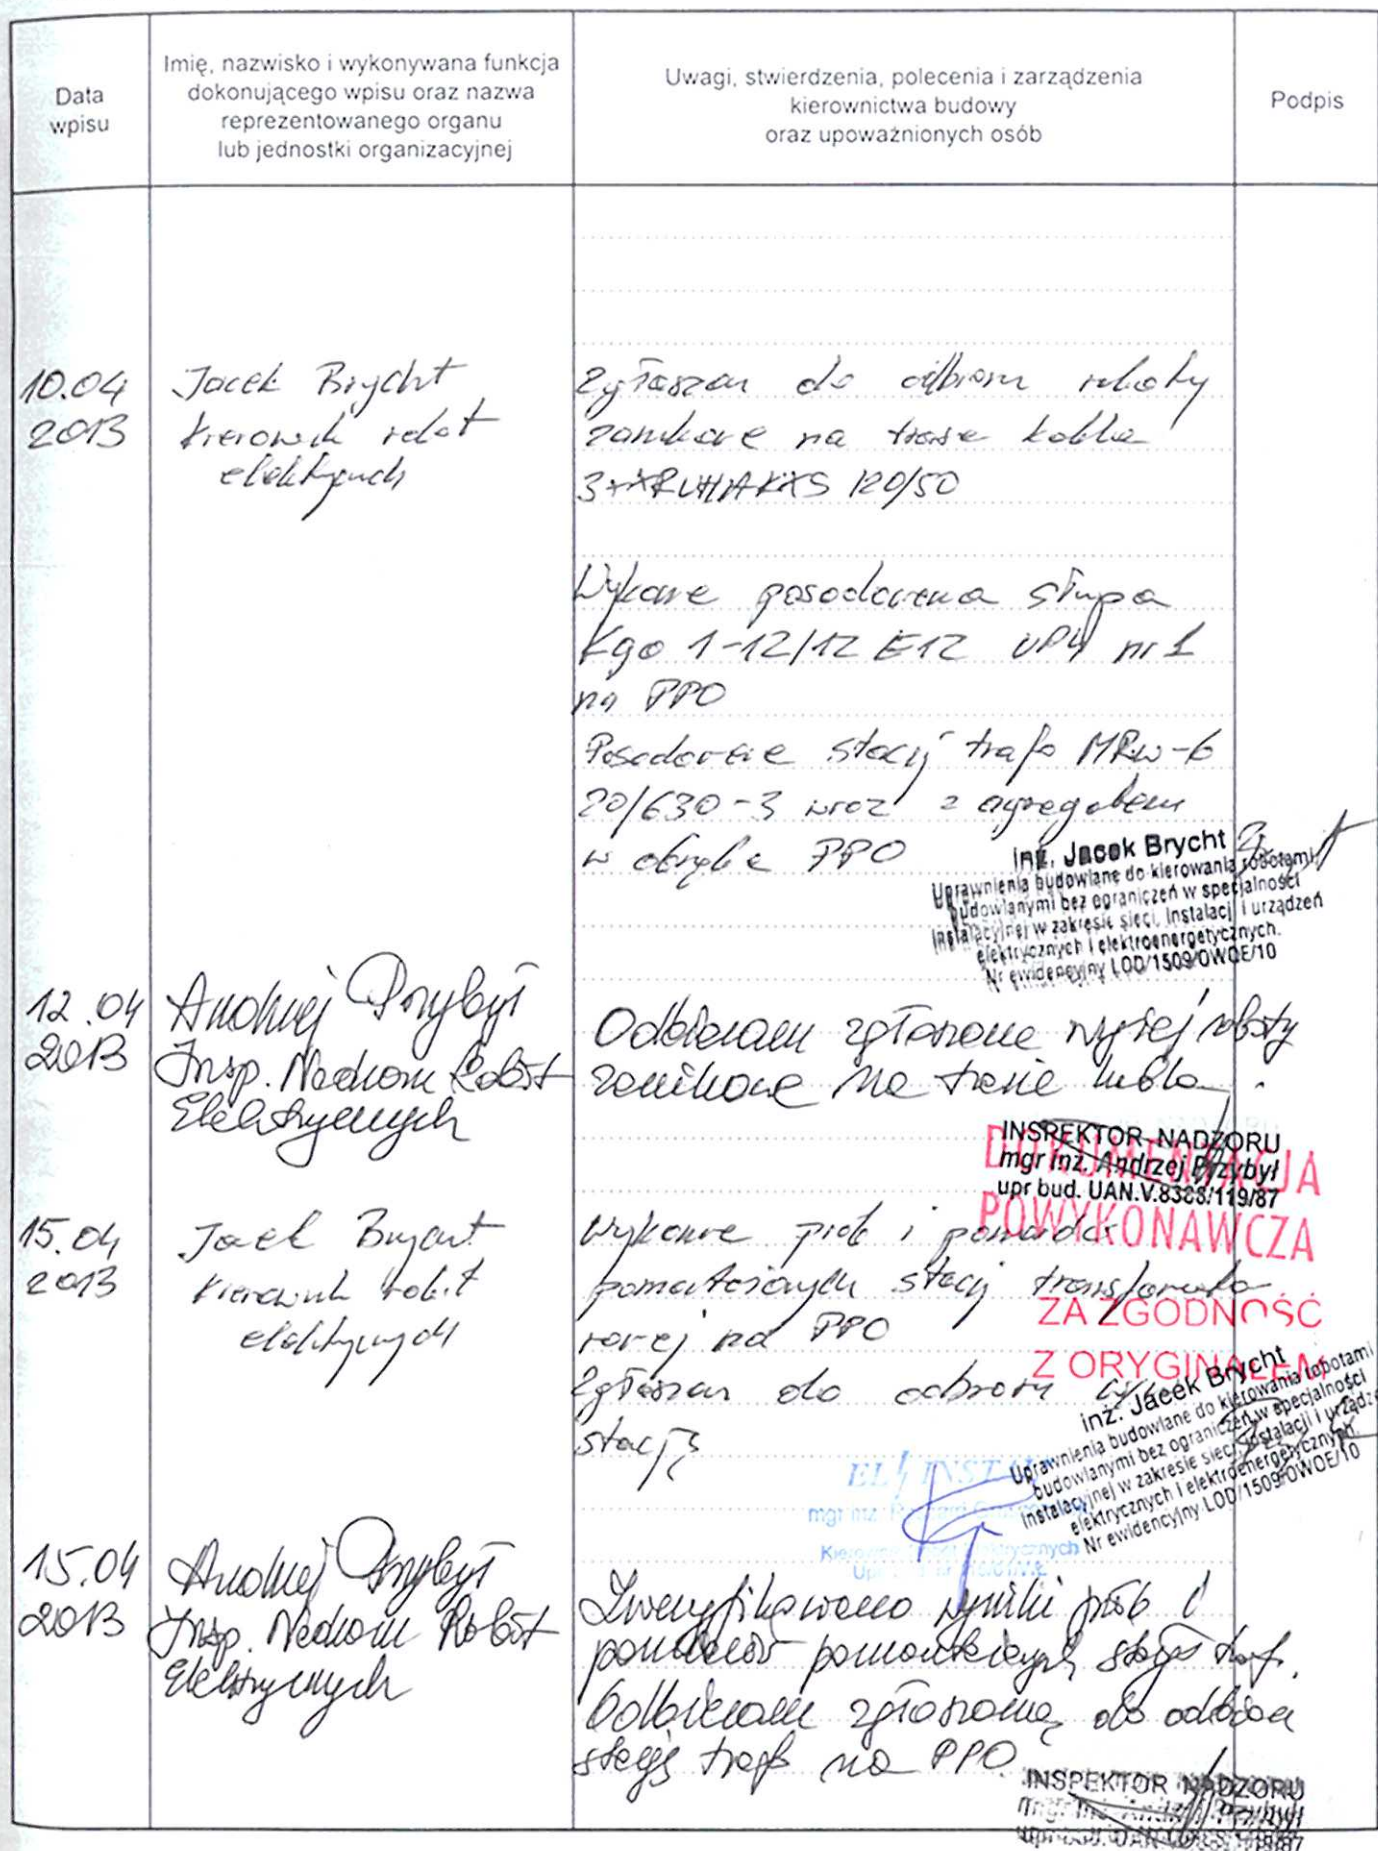 Data
wpisu
Imię, nazwisko i wykonywana funkcja
dokonującego wpisu oraz nazwa
reprezentowanego organu
lub jednostki organizacyjnej
Uwagi, stwierdzenia, polecenia i zarządzenia
kierownictwa budowy
oraz upoważnionych osób
Podpis
10.04
2013
Jacek Brycht
Kierownik robót
elektrycznych
Zgłaszam do odbioru roboty
zanikowe na trasie kabla
120/50
posadowienia słupa
Kgo 1-12/12 E12 nr 1
na PPO
Posadowienie stacji trafo MRw-b
20/630-3 wraz z agregatem
w obrębie PPO
inż. Jacek Brycht
Uprawnienia budowlane do kierowania robotami
budowlanymi bez ograniczeń w specjalności
instalacyjnej w zakresie sieci, instalacji i urządzeń
elektrycznych i elektroenergetycznych.
Nr ewidencyjny LOD/1509/OWOE/10
12.04
2013
Andrzej Przybył
Insp. Nadzoru Robót
Elektrycznych
Odbieram zgłoszone wyżej roboty
zanikowe na trasie kabla.
INSPEKTOR NADZORU
mgr inż. Andrzej Przybył
upr bud. UAN.V.8388/119/87
DOKUMENTACJA
POWYKONAWCZA
15.04
2013
Jacek Brycht
Kierownik robót
elektrycznych
prób i pomiarów
pomontażowych stacji transformato-
rowej na PPO
Zgłaszam do odbioru
stację
ZA ZGODNOŚĆ
Z ORYGINAŁEM
inż. Jacek Brycht
Uprawnienia budowlane do kierowania robotami
budowlanymi bez ograniczeń w specjalności
instalacyjnej w zakresie sieci, instalacji i urządzeń
elektrycznych i elektroenergetycznych.
Nr ewidencyjny LOD/1509/OWOE/10
mgr inż.
15.04
2013
Andrzej Przybył
Insp. Nadzoru Robót
Elektrycznych
Zweryfikowano wyniki prób i
pomiarów pomontażowych stacji traf.
Odbieram zgłoszoną do odbioru
stację trafo na PPO.
INSPEKTOR NADZORU
mgr inż. Andrzej Przybył